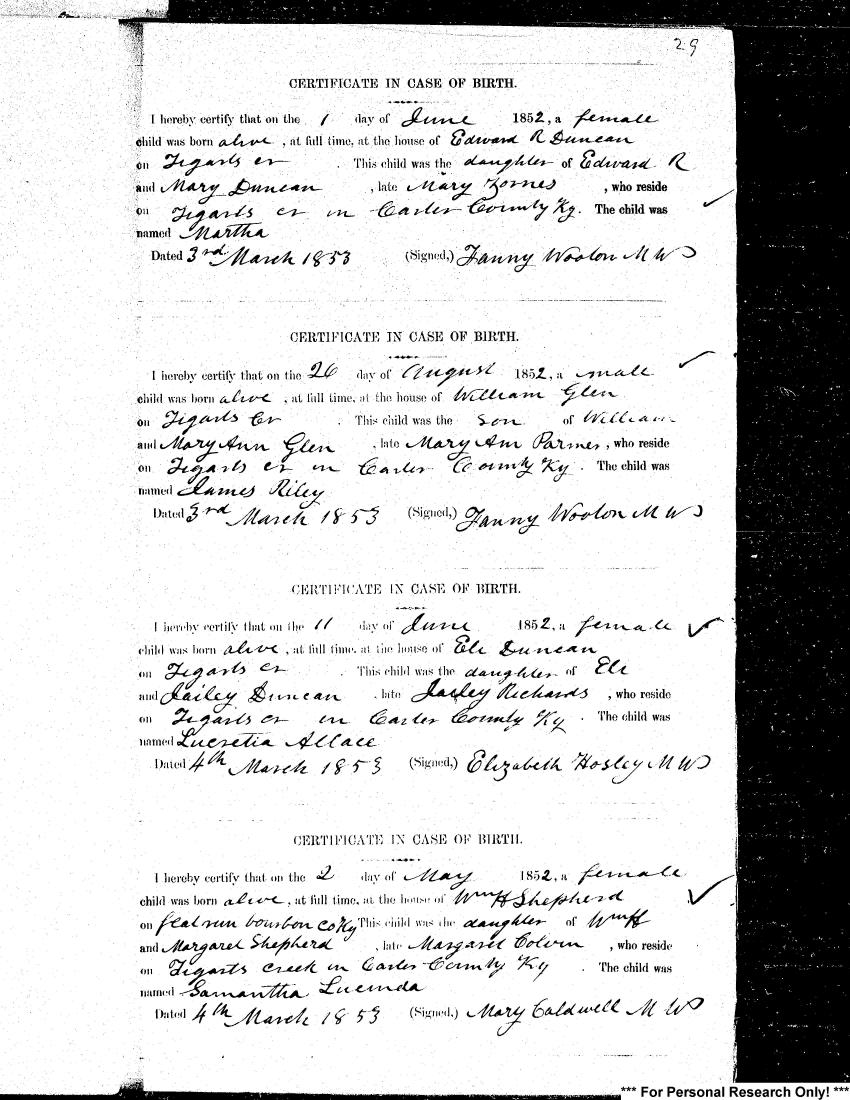 29
CERTIFICATE IN CASE OF BIRTH.
I hereby certify that on the 1 day of June 1852, a female
child was born alive, at full time, at the house of Edward R Duncan
on Tigarts cr. This child was the daughter of Edward R
and Mary Duncan, late Mary Zornes, who reside
on Tigarts cr in Carter County Ky. The child was
named Martha
Dated 3rd March 1853 (Signed,) Fanny Wooton M W
CERTIFICATE IN CASE OF BIRTH.
I hereby certify that on the 26 day of August 1852, a male
child was born alive, at full time, at the house of William Glen
on Tigarts Cr. This child was the son of William
and Mary Ann Glen, late Mary Ann Parmer, who reside
on Tigarts cr in Carter County Ky. The child was
named James Riley
Dated 3rd March 1853 (Signed,) Fanny Wooton M W
CERTIFICATE IN CASE OF BIRTH.
I hereby certify that on the 11 day of June 1852, a female
child was born alive, at full time, at the house of Eli Duncan
on Tigarts cr. This child was the daughter of Eli
and Duncan, late Richards, who reside
on Tigarts cr in Carter County Ky. The child was
named Lucretia
Dated 4th March 1853 (Signed,) Elizabeth Hosley M W
CERTIFICATE IN CASE OF BIRTH.
I hereby certify that on the 2 day of May 1852, a female
child was born alive, at full time, at the house of Wm H Shepherd
on flat run bourbon co Ky This child was the daughter of Wm H
and Margaret Shepherd, late Margaret Colvin, who reside
on Tigarts creek in Carter County Ky. The child was
named Samantha Lucinda
Dated 4th March 1853 (Signed,) Mary Caldwell M W
*** For Personal Research Only! ***